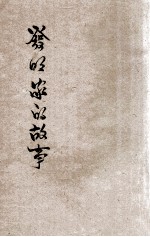 發明家的故事